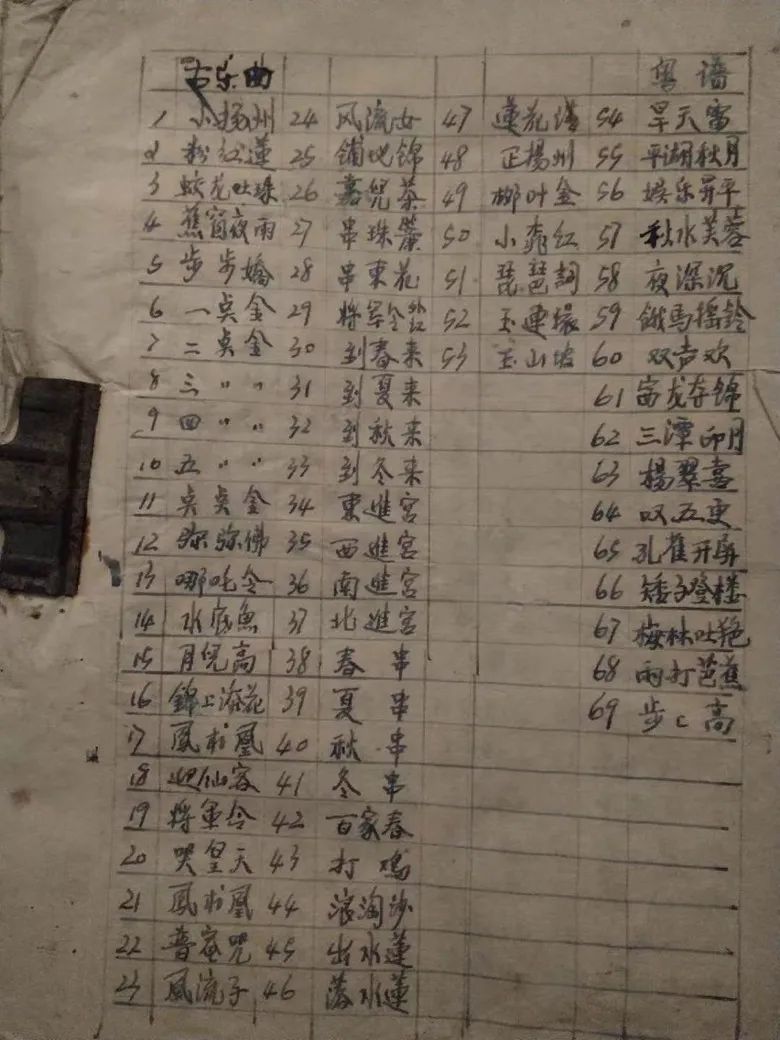 古乐曲 粤谱
1 小揚州 24 风流女 47 蓮花 54 旱天雷
2 粉红蓮 25 鋪地錦 48 正揚州 55 平湖秋月
3 吐珠 26 茶 49 柳叶金 56 娱乐昇平
4 蕉窗夜雨 27 串珠簾 50 小桃红 57 秋水芙蓉
5 步步嬌 28 串東花 51 琵琶詞 58 夜深沉
6 一点金 29 將军令 52 玉連環 59 餓馬摇鈴
7 二点金 30 到春来 53 玉山坡 60 双声欢
8 三 〃 〃 31 到夏来 61 龙夺锦
9 四 〃 〃 32 到秋来 62 三潭印月
10 五 〃 〃 33 到冬来 63 楊翠喜
11 点点金 34 東進宮 64 叹五更
12 弥弥佛 35 西進宮 65 孔雀开屏
13 哪吒令 36 南進宮 66 矮子登楼
14 水底魚 37 北進宮 67 梅林吐艳
15 月児高 38 春串 68 雨打芭蕉
16 錦上添花 39 夏串 69 步々高
17 鳳求凰 40 秋串
18 迎仙客 41 冬串
19 將軍令 42 百家春
20 哭皇天 43 打鸡
21 鳳求凰 44 浪淘沙
22 普庵咒 45 出水蓮
23 風流子 46 落水蓮